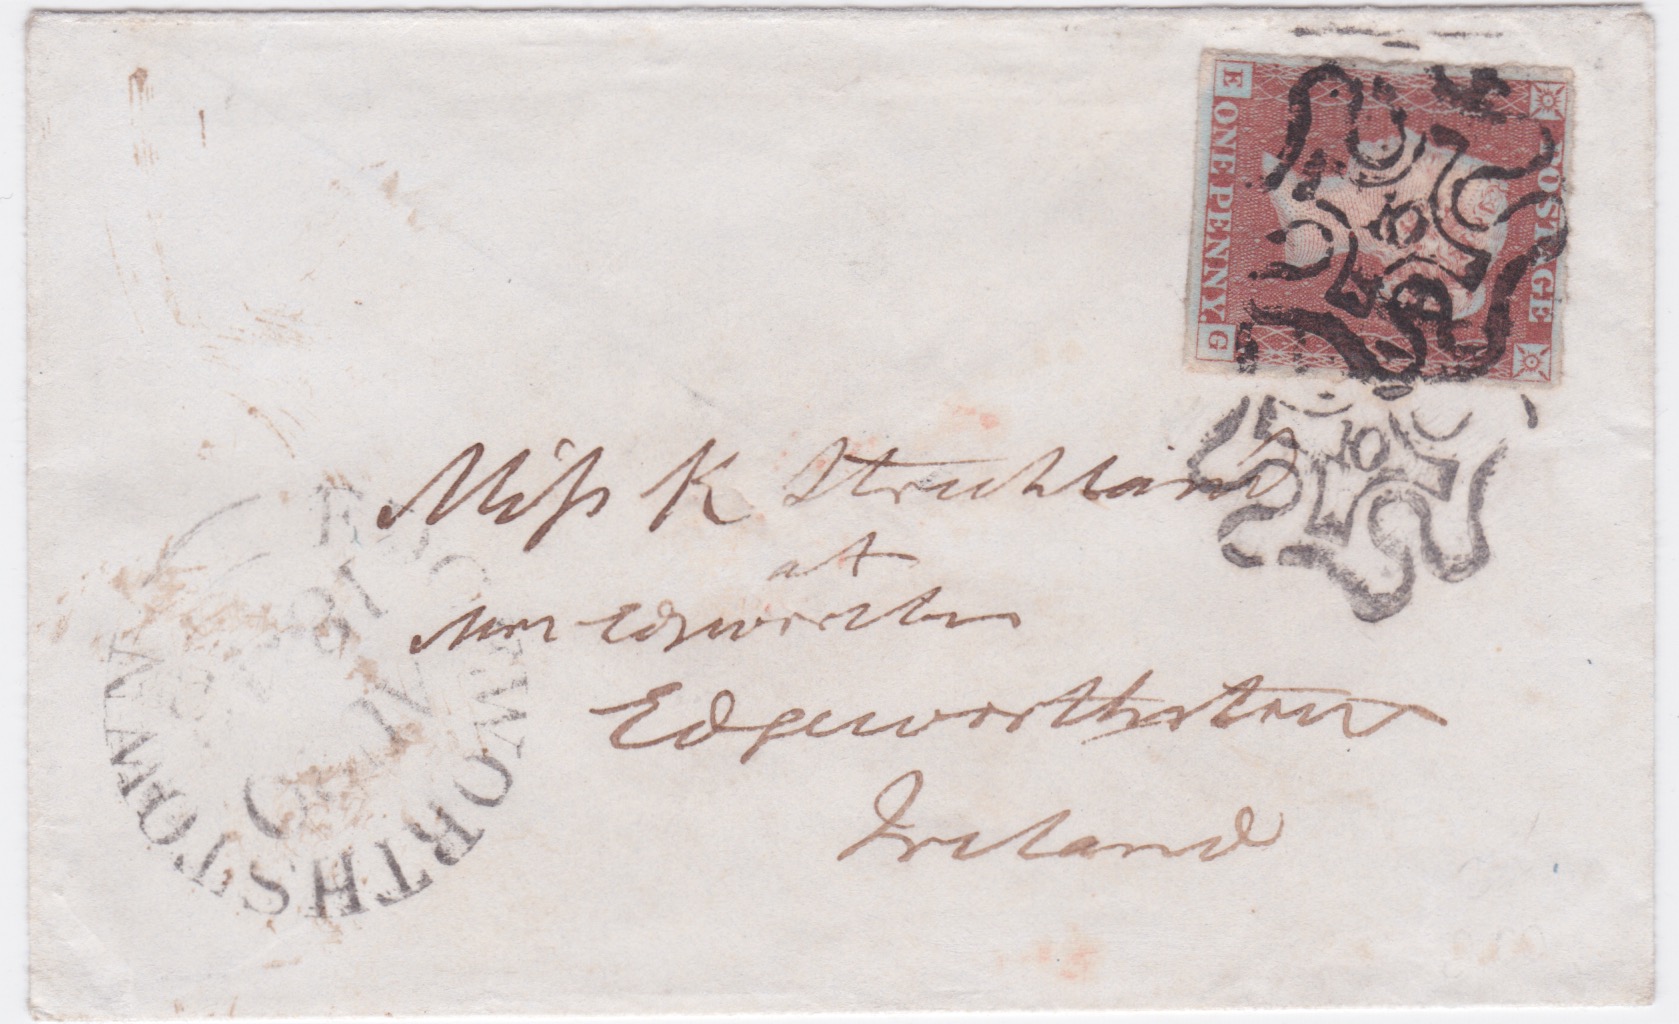 POSTAGE
E ONE PENNY. G
10
10
Miss K Strickland
at
Mrs Edgeworths
Edgeworthstown
Ireland
EDGEWORTHSTOWN